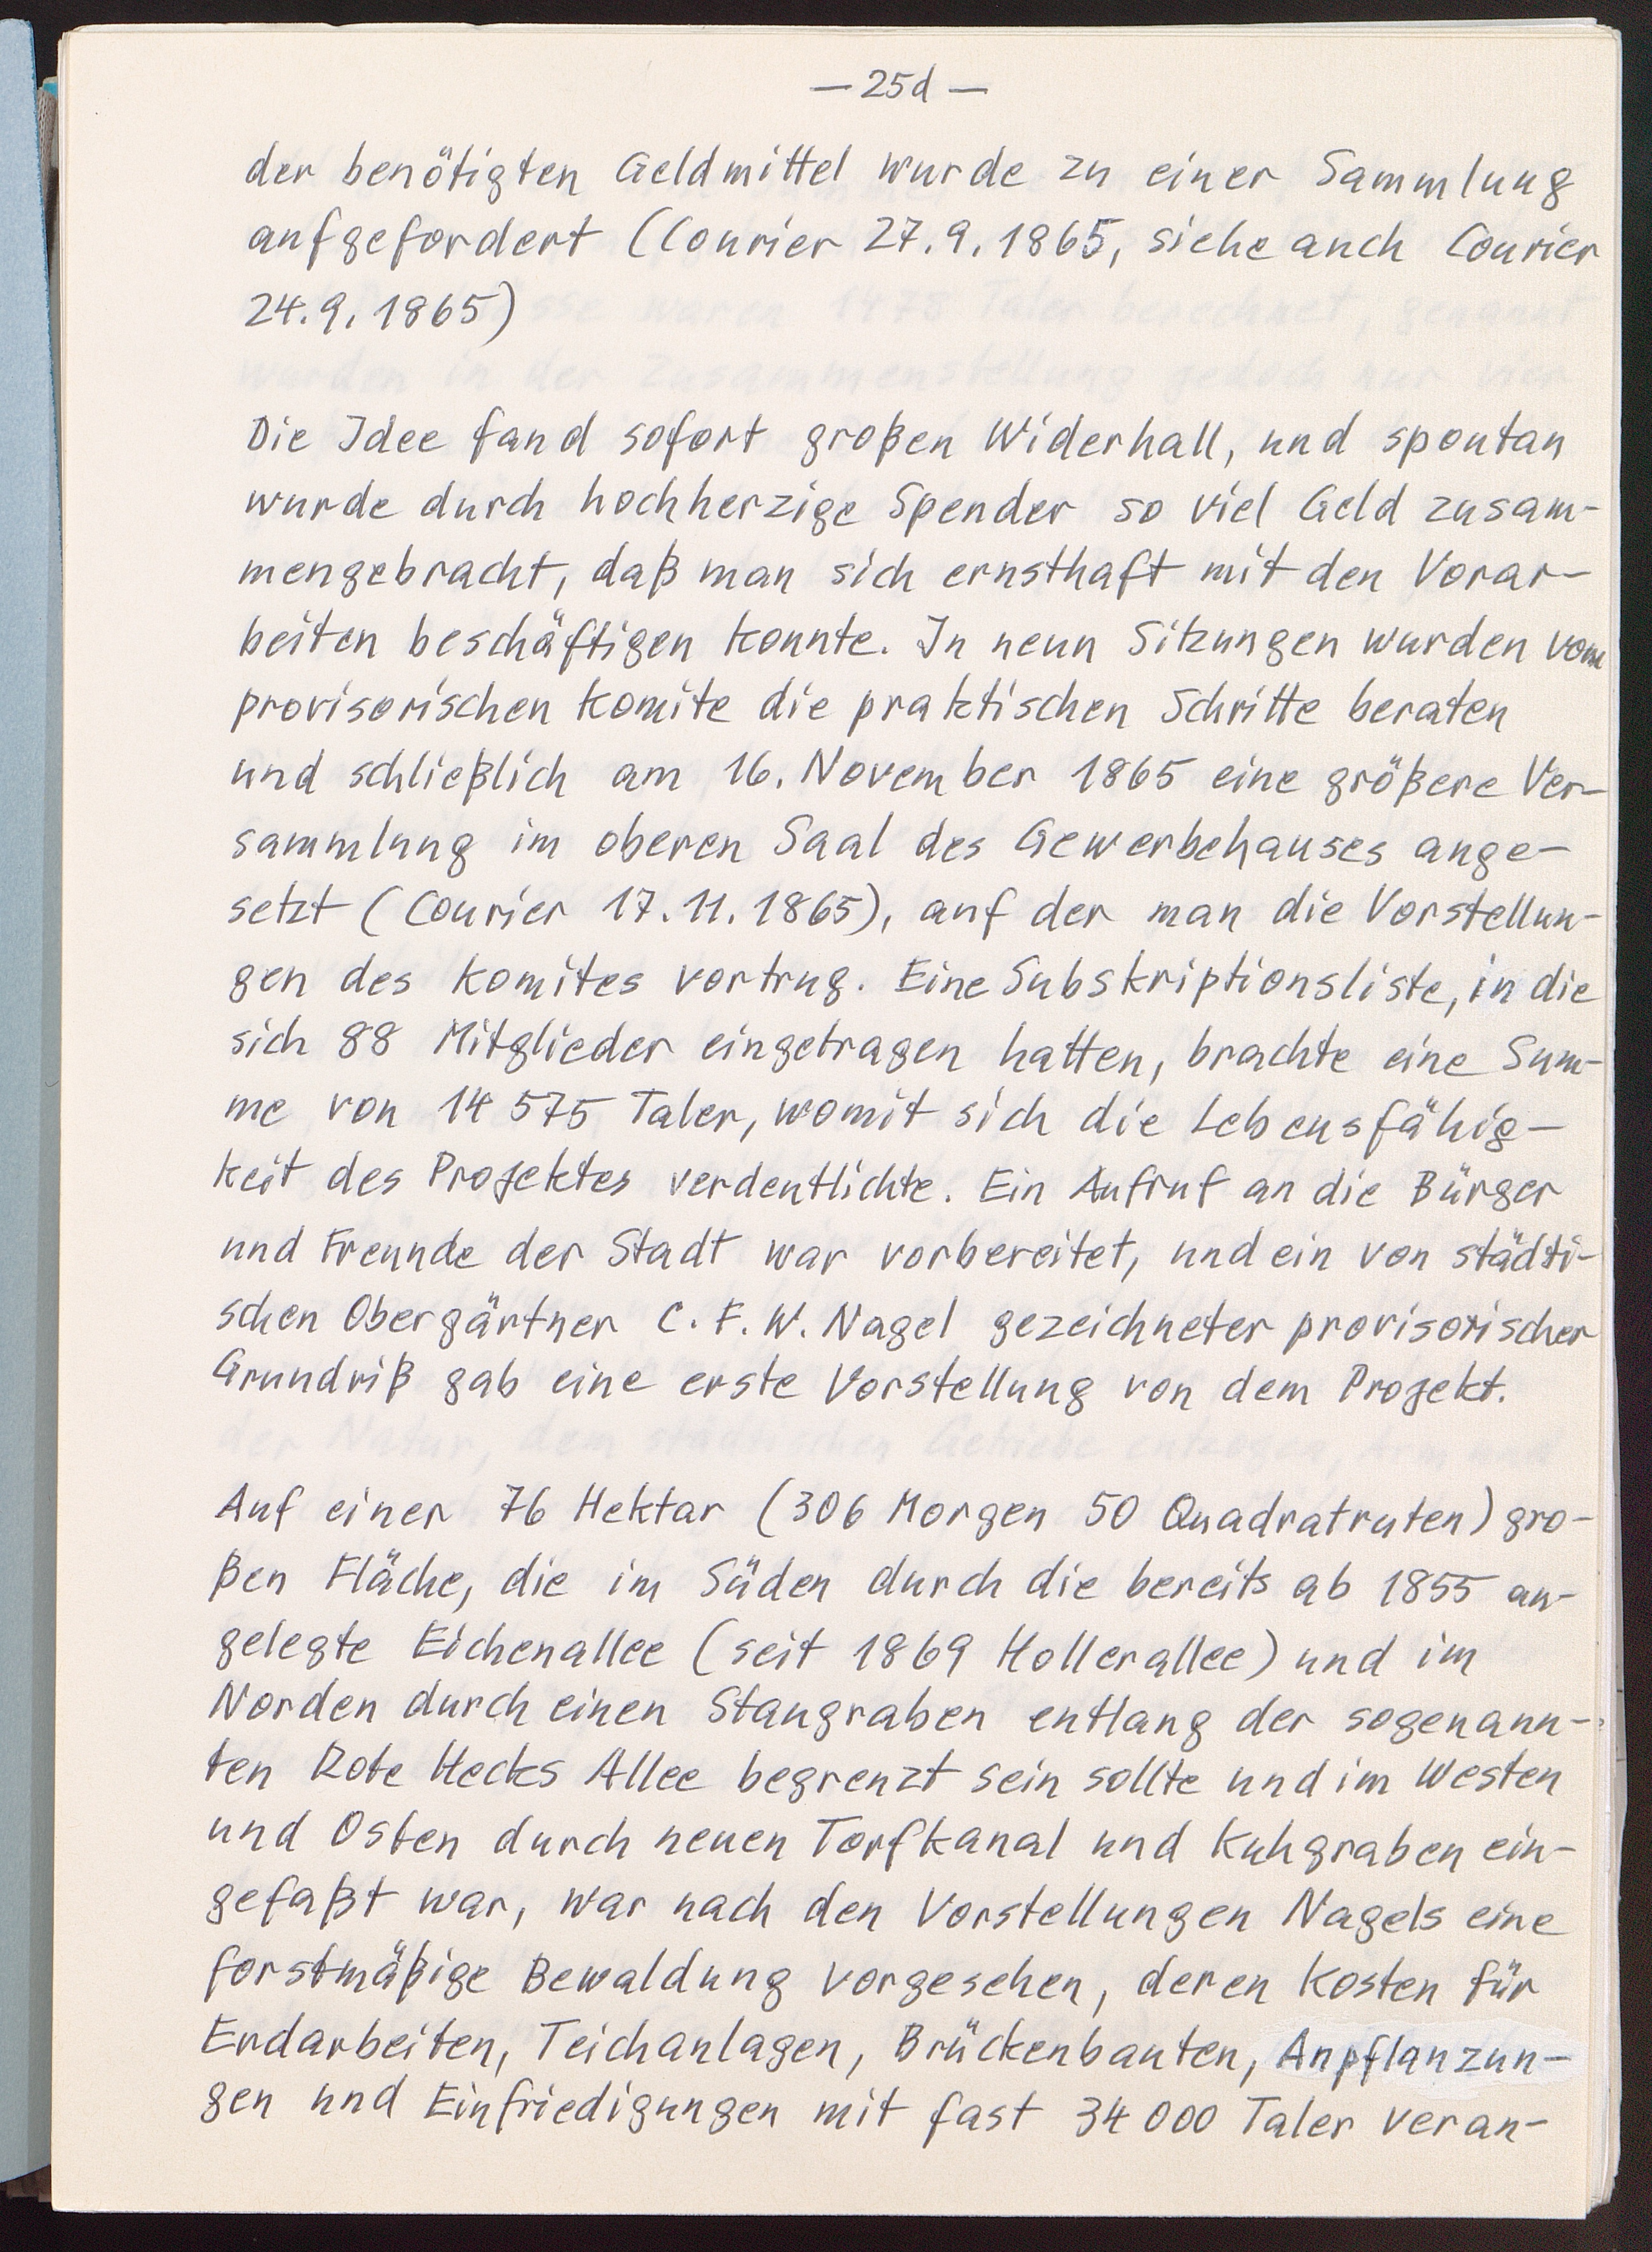 — 25d —
der benötigten Geldmittel wurde zu einer Sammlung
aufgefordert (Courier 27.9.1865, siehe auch Courier
24.9.1865)
Die Idee fand sofort großen Widerhall, und spontan
wurde durch hochherzige Spender so viel Geld zusam-
mengebracht, daß man sich ernsthaft mit den Vorar-
beiten beschäftigen konnte. In neun Sitzungen wurden vom
provisorischen Komite die praktischen Schritte beraten
und schließlich am 16. November 1865 eine größere Ver-
sammlung im oberen Saal des Gewerbehauses ange-
setzt (Courier 17.11.1865), auf der man die Vorstellun-
gen des Komites vortrug. Eine Subskriptionsliste, in die
sich 88 Mitglieder eingetragen hatten, brachte eine Sum-
me von 14 575 Taler, womit sich die Lebensfähig-
keit des Projektes verdeutlichte. Ein Aufruf an die Bürger
und Freunde der Stadt war vorbereitet, und ein von städti-
schen Obergärtner C. F. W. Nagel gezeichneter provisorischer
Grundriß gab eine erste Vorstellung von dem Projekt.
Auf einer 76 Hektar (306 Morgen 50 Quadratruten) gro-
ßen Fläche, die im Süden durch die bereits ab 1855 an-
gelegte Eichenallee (seit 1869 Hollerallee) und im
Norden durch einen Staugraben entlang der sogenann-
ten Rote Hecks Allee begrenzt sein sollte und im Westen
und Osten durch neuen Torfkanal und Kuhgraben ein-
gefaßt war, war nach den Vorstellungen Nagels eine
forstmäßige Bewaldung vorgesehen, deren Kosten für
Erdarbeiten, Teichanlagen, Brückenbauten, Anpflanzun-
gen und Einfriedigungen mit fast 34 000 Taler veran-